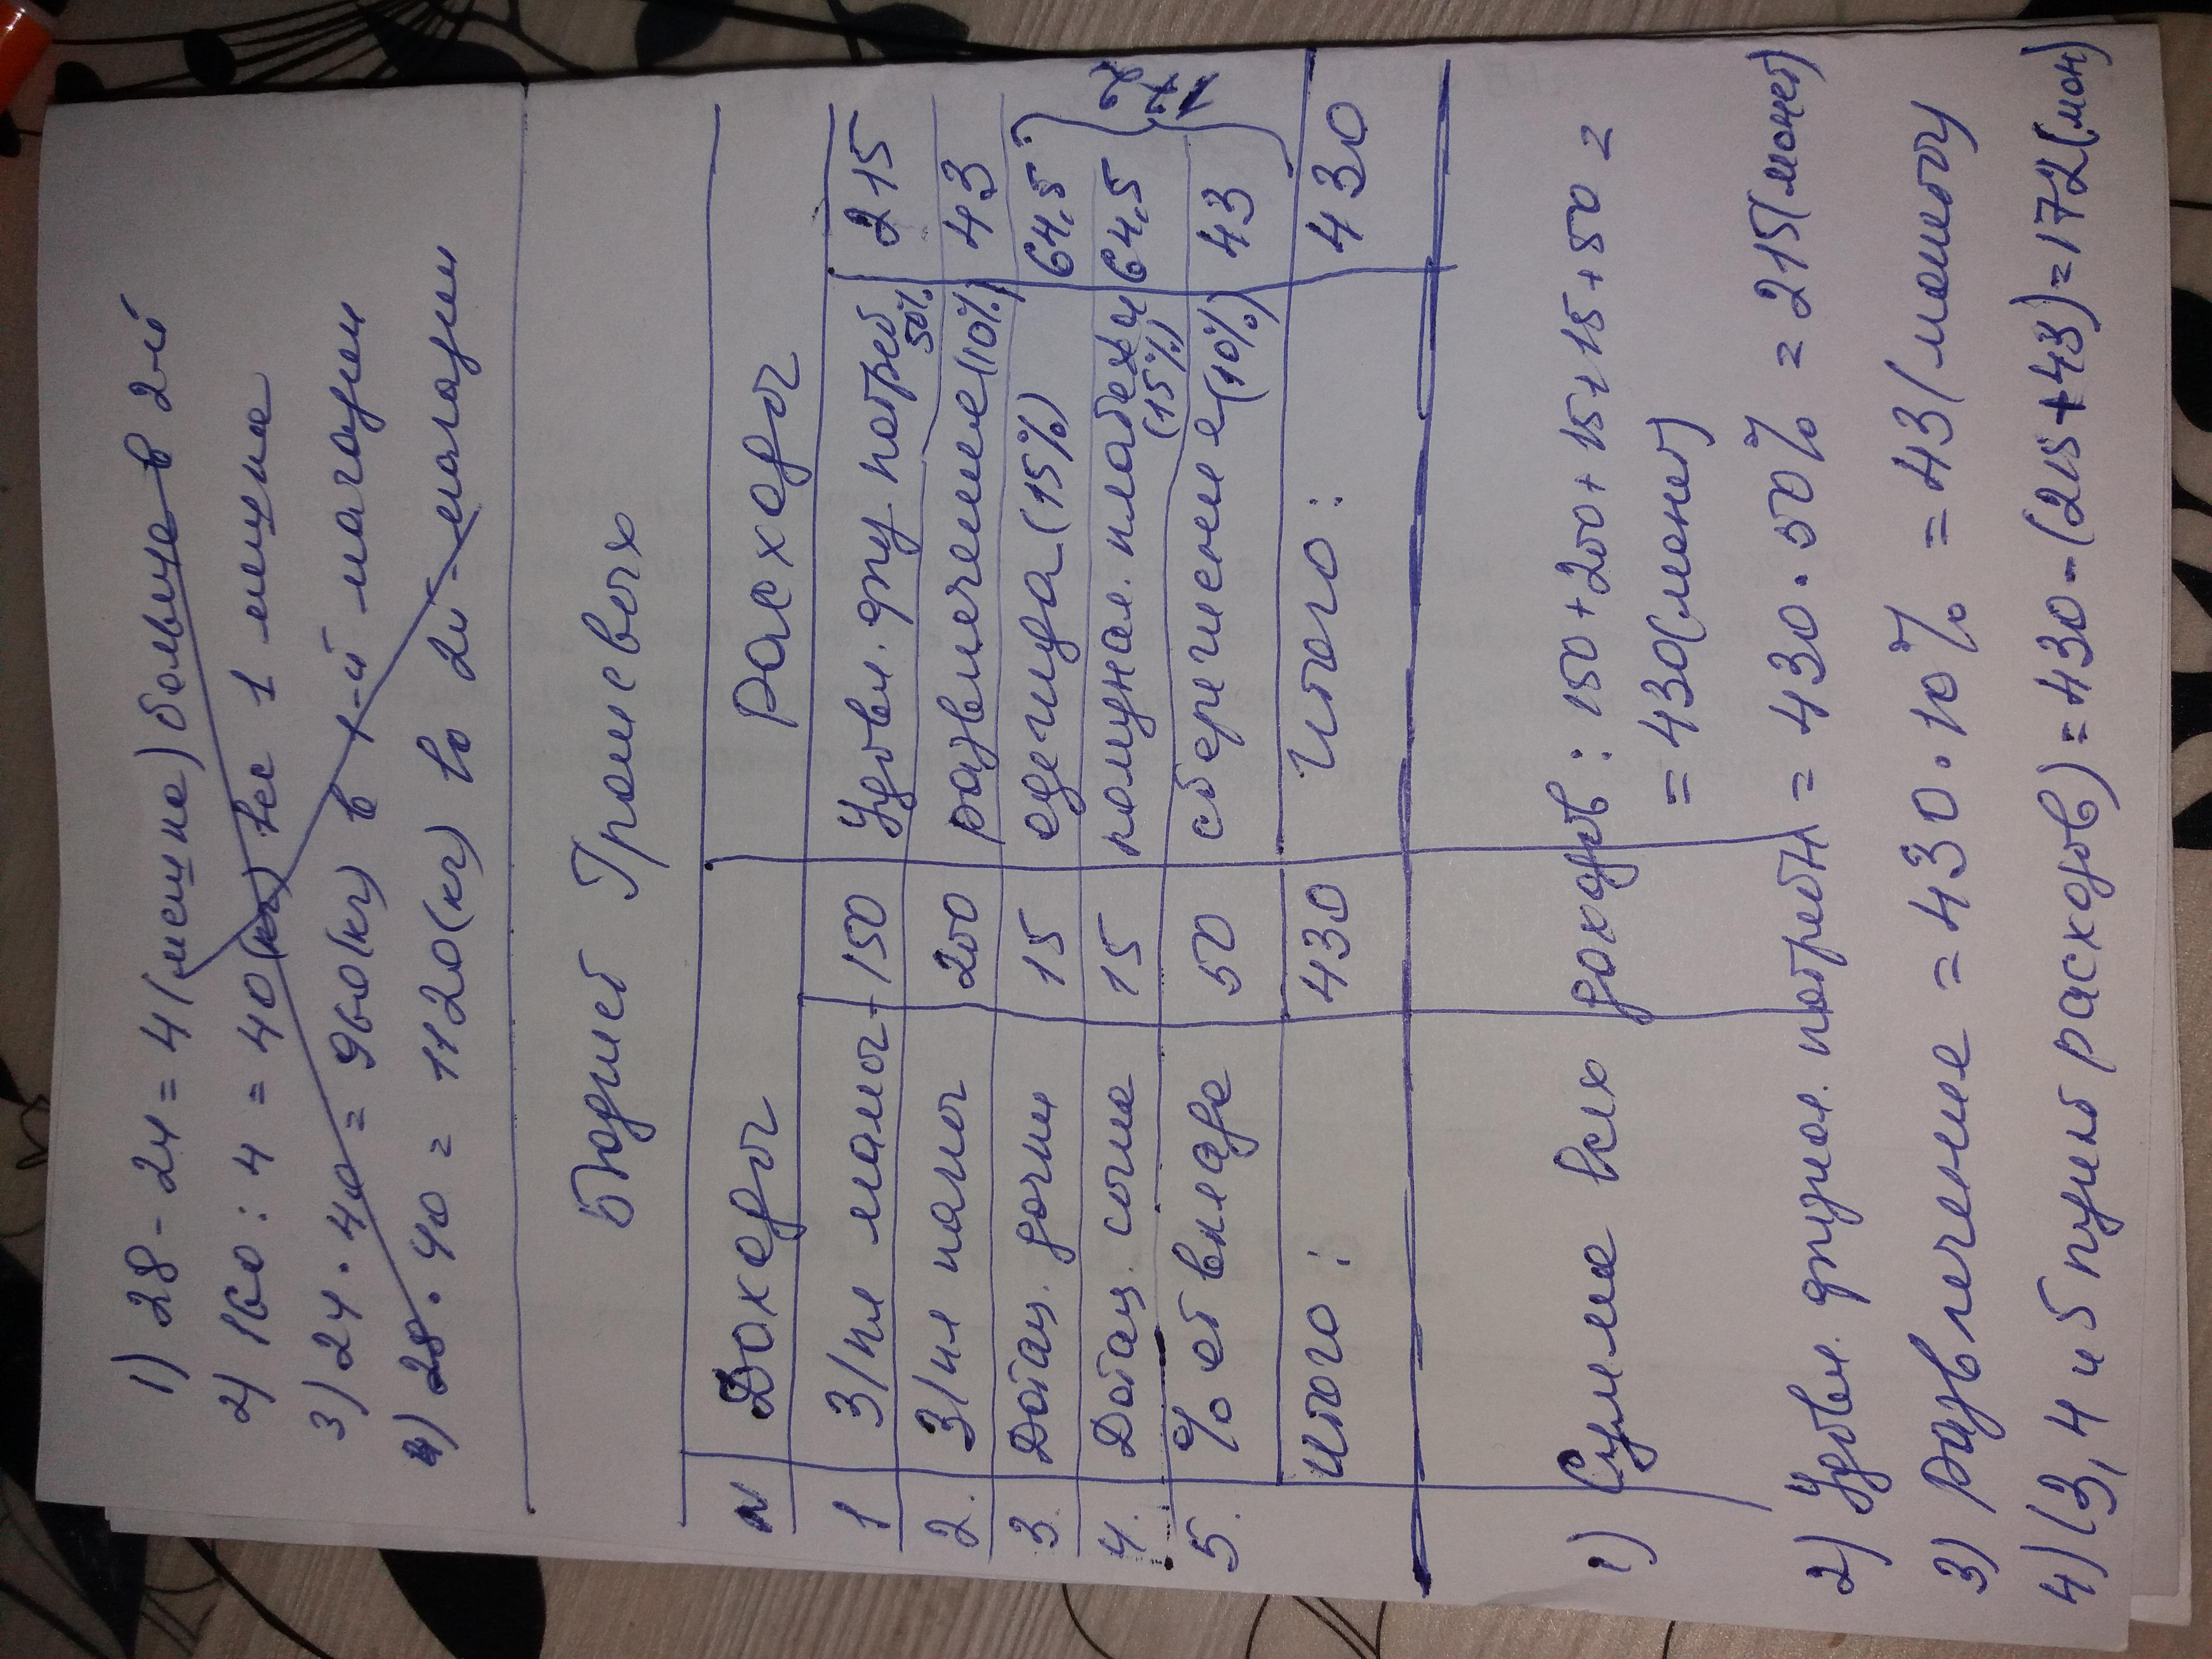 1) 28 - 24 = 4 (мешка) больше в 2-й
2) 160 : 4 = 40 (кг) вес 1 мешка
3) 24 · 40 = 960 (кг) в 1-й магазин
4) 28 · 40 = 1120 (кг) во 2й - магазин
Бюджет Грошевых
N Доходы Расходы
1 З/пл мамы 150 Удовл. дух. потреб 50% 215
2. З/пл папы 200 развлечение (10%) 43
3. Дотац. дочки 15 одежда (15%) 64,5
4. Дотац. сына 15 комунал. платежи (15%) 64,5
5. % от вклада 50 сбережение (10%) 43
итого: 430 Итого: 430
1) Сумма всех доходов: 150 + 200 + 15 + 15 + 50 =
= 430 (монет)
2) Удовл. духов. потребн = 430 · 50% = 215 (монет)
3) Развлечение = 430 · 10% = 43 (монеты
4) (3, 4 и 5 пункт расходов) = 430 - (215 + 43) = 172 (мон)